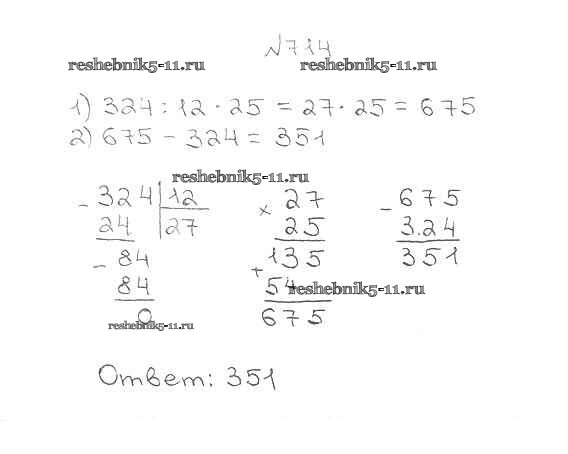 №714
reshebnik5-11.ru reshebnik5-11.ru
1) 324 : 12 · 25 = 27 · 25 = 675
2) 675 - 324 = 351
reshebnik5-11.ru
- 324 | 12
24 27
- 84
84
0
reshebnik5-11.ru
× 27
25
135
+
54
reshebnik5-11.ru
675
- 675
3.24
351
Ответ: 351